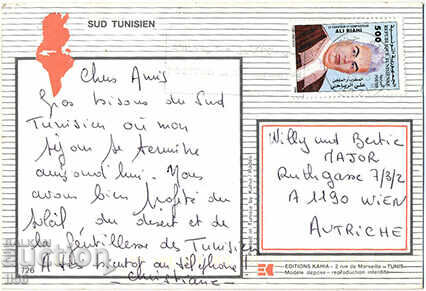 SUD TUNISIEN
Chers Amis
Gros bisous du Sud
Tunisien où mon
séjour se termine
aujourd'hui. Nous
avons bien profité du
soleil du desert et de
la gentillesse des Tunisiens
A très bientot au téléphone
Christiane
726
ALI RIAHI
500
REPUBLIQUE TUNISIENNE
علي الرياحي
Willy und Bertie
MAJOR
Ruthgasse 7/3/2
A 1190 WIEN
AUTRICHE
EDITIONS KAHIA - 2 rue de Marseille - TUNIS
Modèle déposé - reproduction interdite
auction